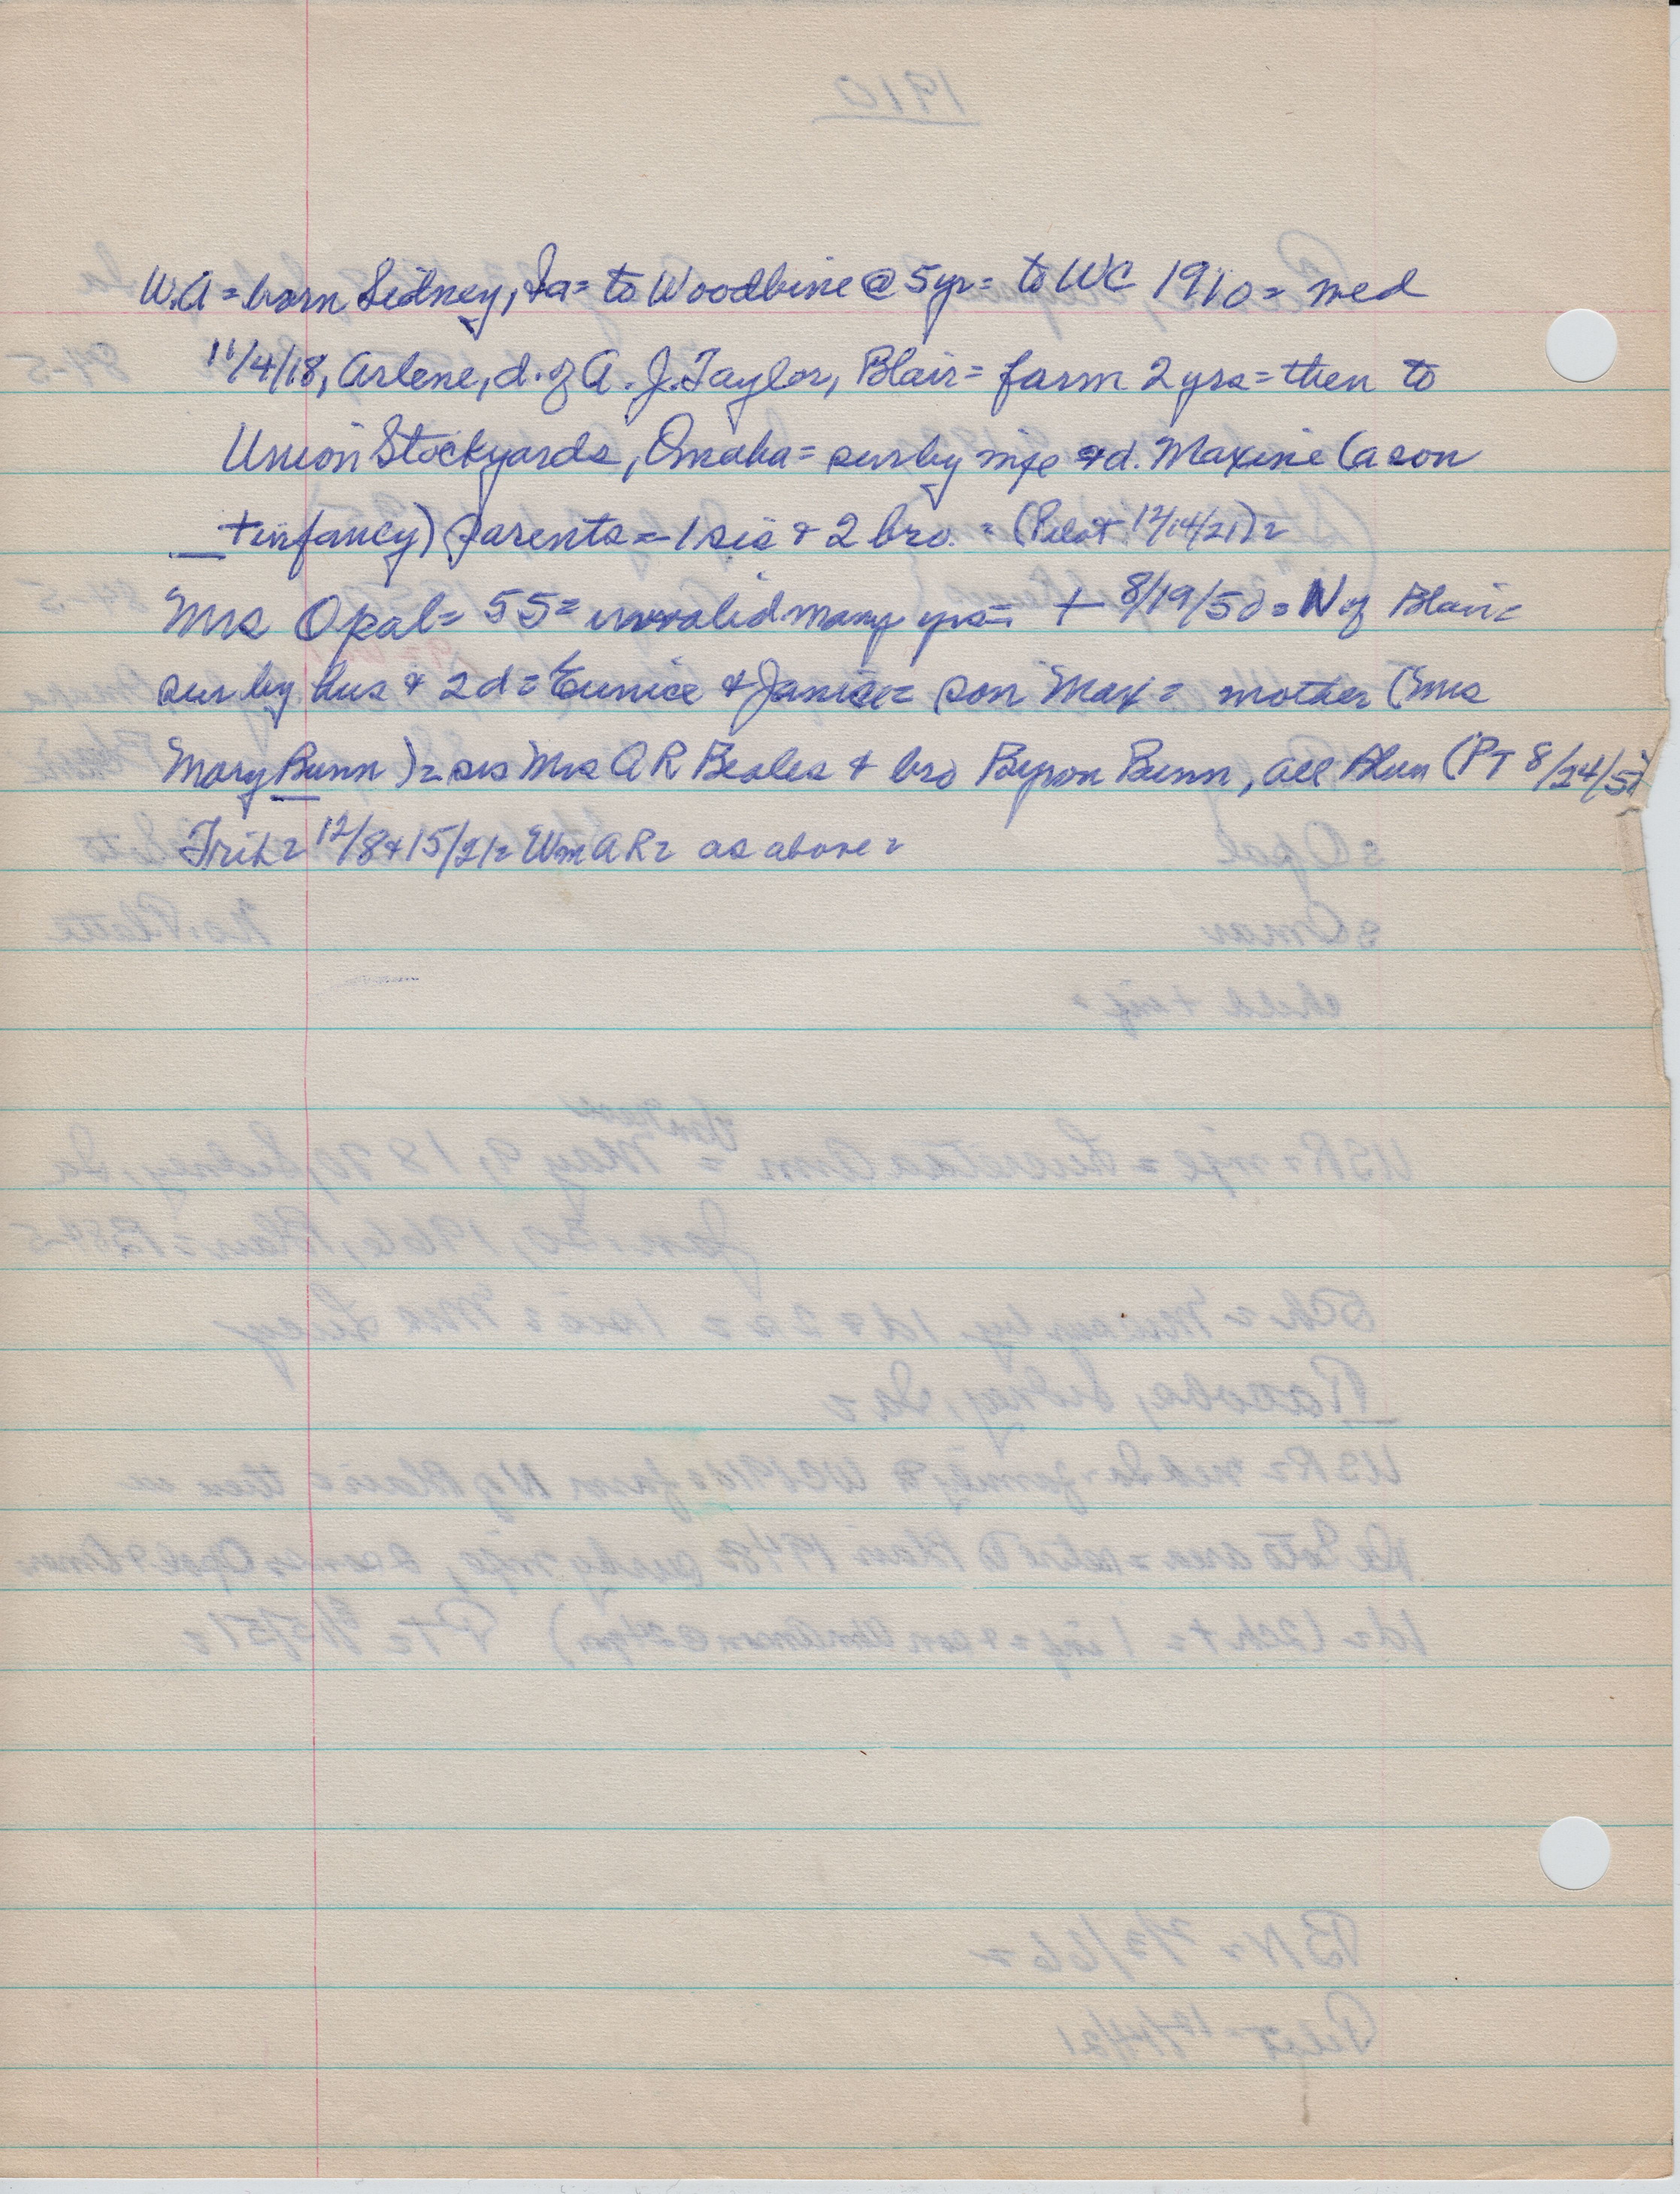 W.A = born Sidney, Ia = to Woodbine @ 5yr = to WC 1910 = med
11/4/18, Arlene, d. of A. J. Taylor, Blair = farm 2 yrs = then to
Union Stockyards, Omaha = sur by wife & d. Maxine (a son
+ infancy) parents = 1 sis & 2 bro = (Pilot 12/14/21) =
Mrs Opal = 55 = invalid many yrs = + 8/19/50 = N of Blair =
sur by hus & 2 d = Eunice & Janice = son Max = mother (Mrs
Mary Bunn) = sis Mrs A R Beales & bro Byron Bunn, all Blair (PT 8/24/50
Trib = 12/8 & 15/21 = Wm A R = as above =